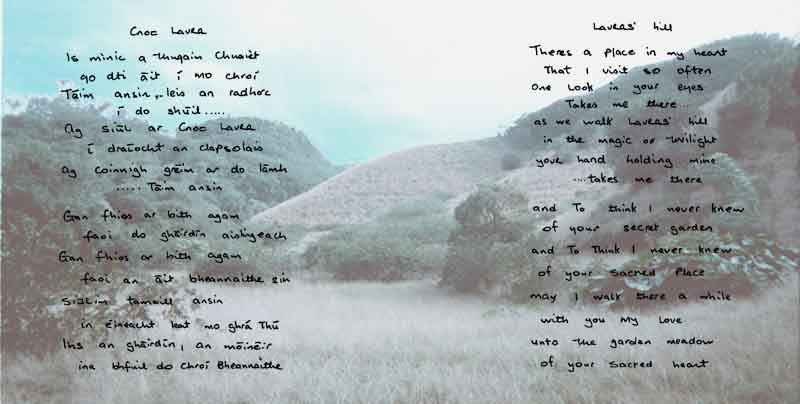 Cnoc Laura
Is minic a thugain Chuairt
go dti áit í mo chroí
Táim ansin, leis an radharc
í do shúil.....
Ag siúl ar Cnoc Laura
í draíocht an clapsolais
Ag coinnigh gréim ar do lámh
..... Táim ansin
Gan fhios ar bith agam
faoi do gháirdín aislingeach
Gan fhios ar bith agam
faoi an áit bheannaithe sin
Siúlim tamaill ansin
in éineacht leat mo ghrá Thú
an gháirdín, an móinéir
ina bhfuil do chroí Bheannaithe
Lauras' hill
Theres a place in my heart
That I visit so often
One look in your eyes
Takes me there...
as we walk Lauras' hill
in the magic of twilight
your hand holding mine
....takes me there
and To think I never knew
of your secret garden
and To Think I never knew
of your sacred Place
may I walk there a while
with you My Love
unto the garden meadow
of your sacred heart